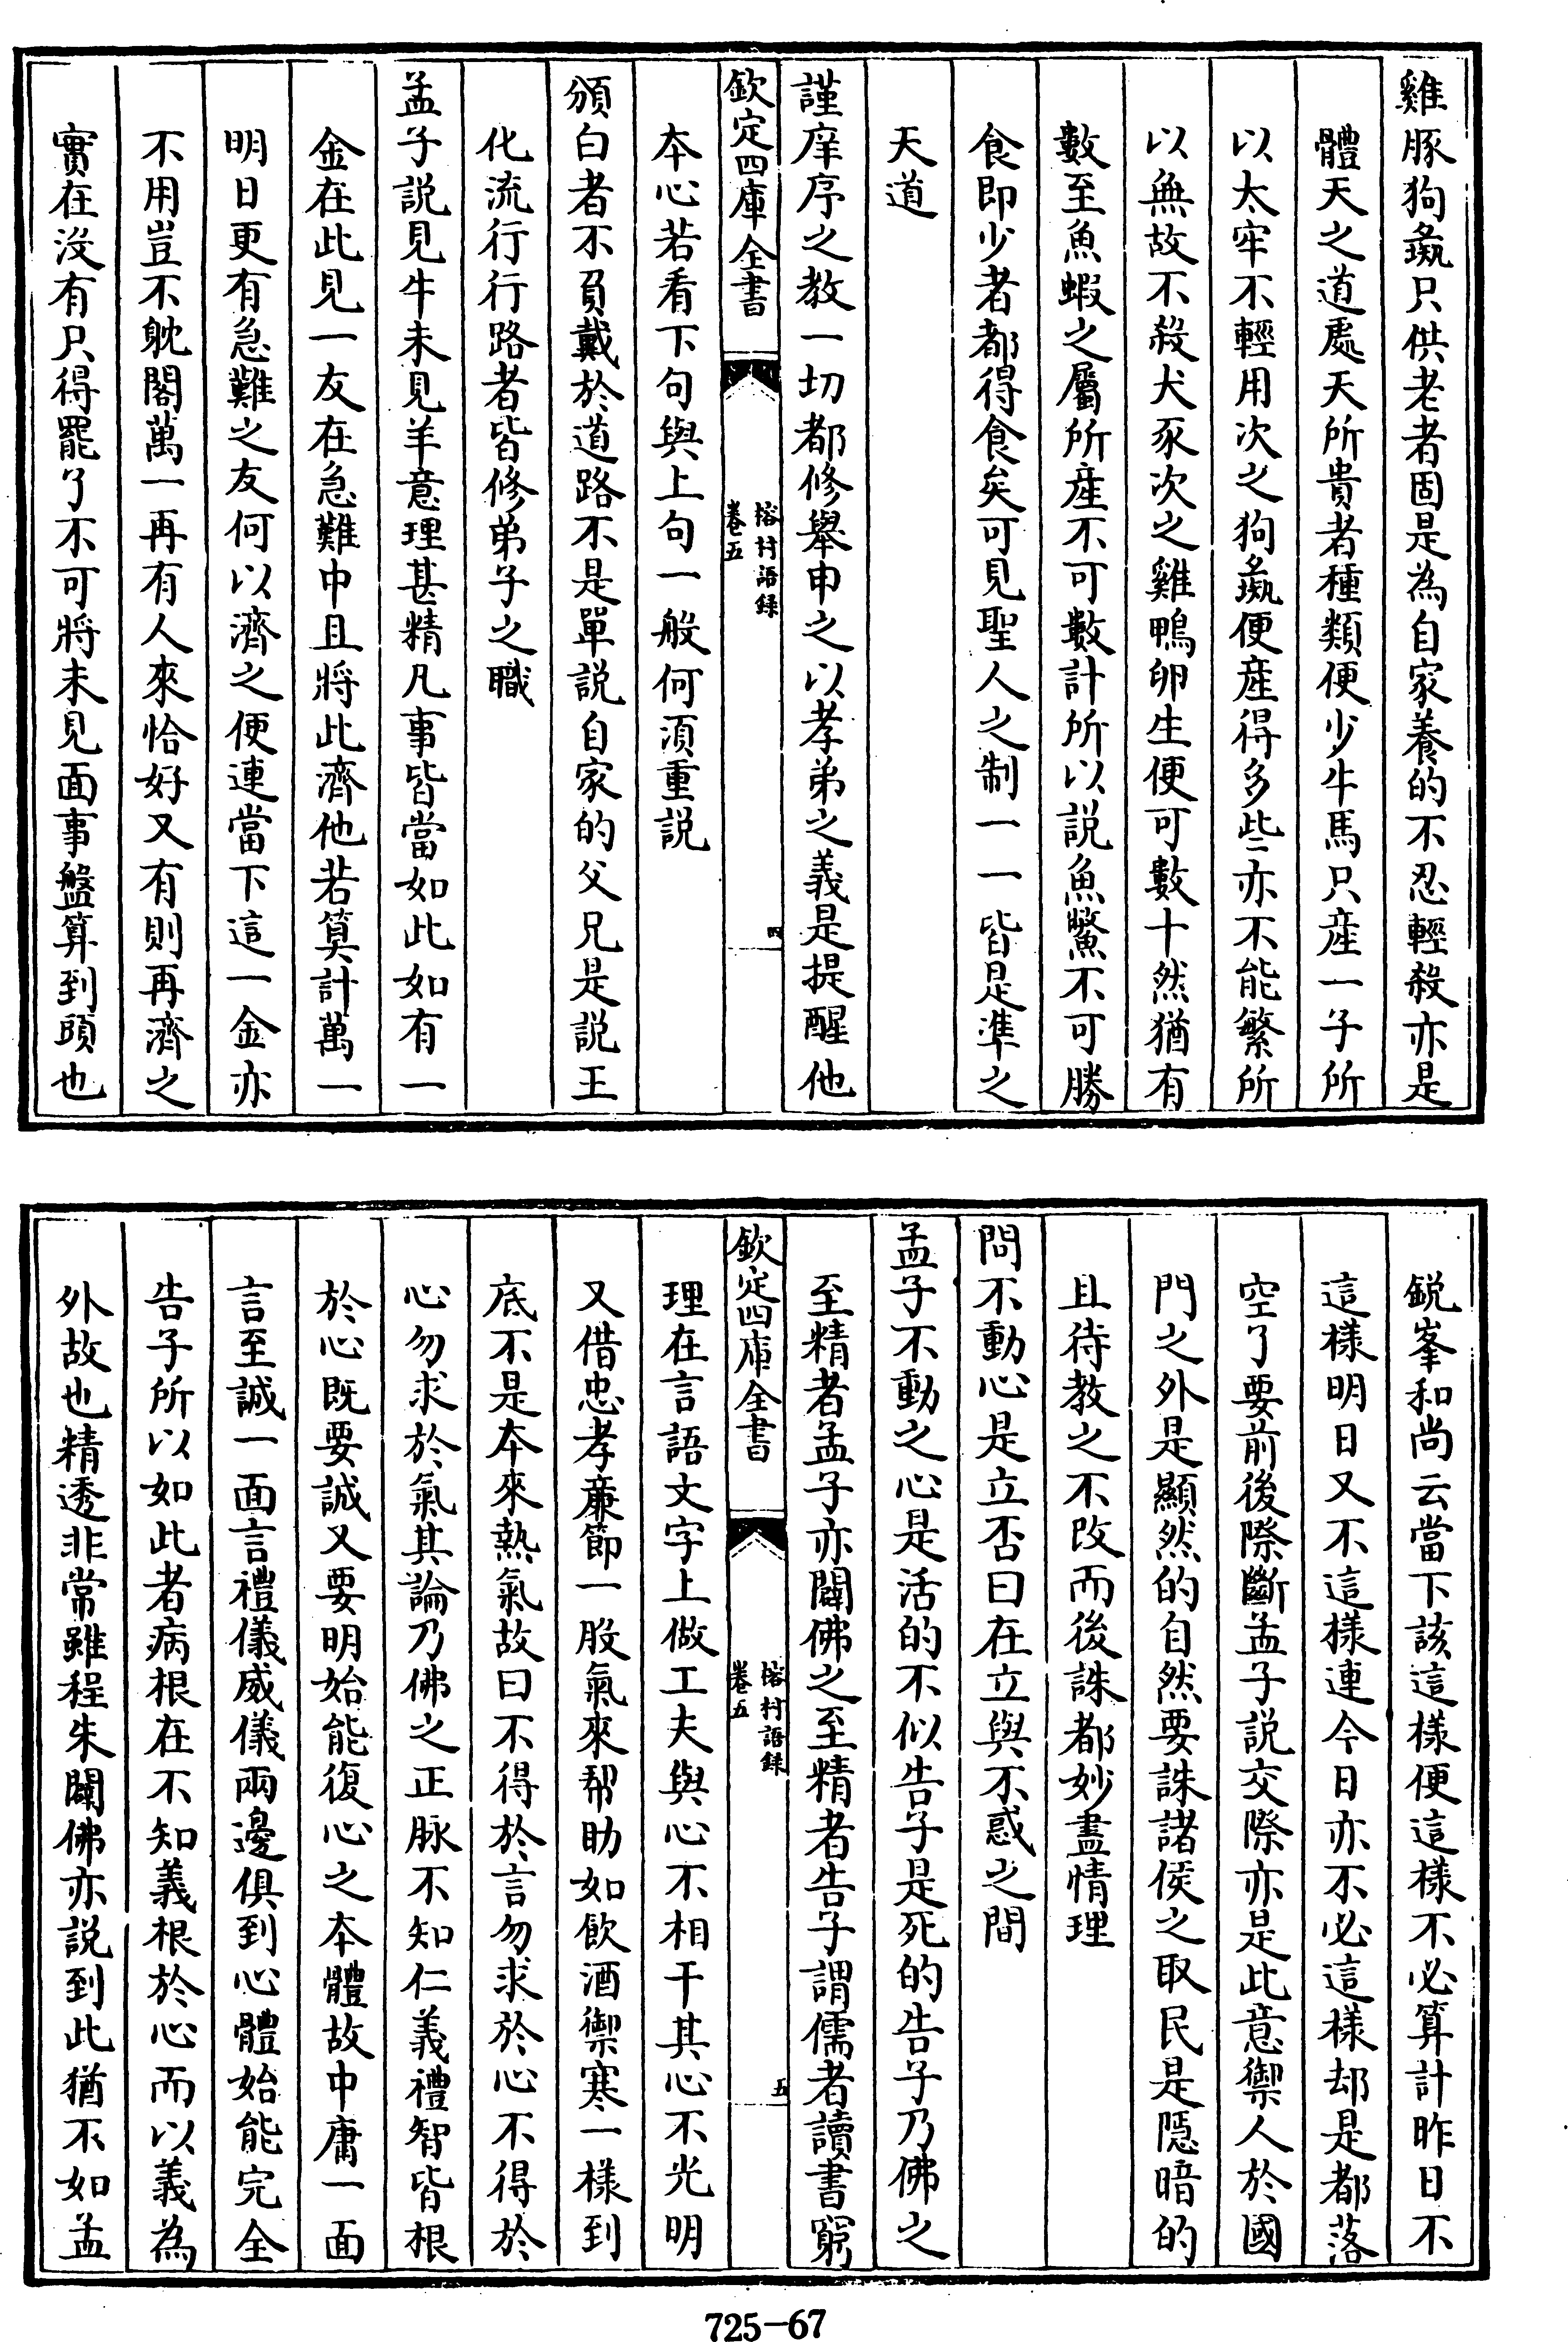 雞豚狗彘只供老者固是為自家養的不忍輕殺亦是
體天之道處天所貴者種類便少牛馬只產一子所
以太牢不輕用次之狗彘便產得多些亦不能繁所
以無故不殺犬豕次之雞鴨卵生便可數十然猶有
數至魚蝦之屬所產不可數計所以説魚鼈不可勝
食即少者都得食矣可見聖人之制一一皆是準之
天道
謹庠序之教一切都修舉申之以孝弟之義是提醒他
欽定四庫全書
榕村語録
卷五
四
本心若看下句與上句一般何須重説
頒白者不負戴於道路不是單説自家的父兄是説王
化流行行路者皆修弟子之職
孟子説見牛未見羊意理甚精凡事皆當如此如有一
金在此見一友在急難中且將此濟他若算計萬一
明日更有急難之友何以濟之便連當下這一金亦
不用豈不躭閣萬一再有人來恰好又有則再濟之
實在沒有只得罷了不可將未見面事盤算到頭也
鋭峯和尚云當下該這樣便這樣不必算計昨日不
這樣明日又不這樣連今日亦不必這樣却是都落
空了要前後際斷孟子説交際亦是此意禦人於國
門之外是顯然的自然要誅諸侯之取民是隱暗的
且待教之不改而後誅都妙盡情理
問不動心是立否曰在立與不惑之間
孟子不動之心是活的不似告子是死的告子乃佛之
至精者孟子亦闢佛之至精者告子謂儒者讀書窮
欽定四庫全書
榕村語録
卷五
五
理在言語文字上做工夫與心不相干其心不光明
又借忠孝亷節一股氣來帮助如飲酒禦寒一樣到
底不是本來熱氣故曰不得於言勿求於心不得於
心勿求於氣其論乃佛之正脉不知仁義禮智皆根
於心既要誠又要明始能復心之本體故中庸一面
言至誠一面言禮儀威儀兩邊俱到心體始能完全
告子所以如此者病根在不知義根於心而以義為
外故也精透非常雖程朱闢佛亦説到此猶不如孟
725-67